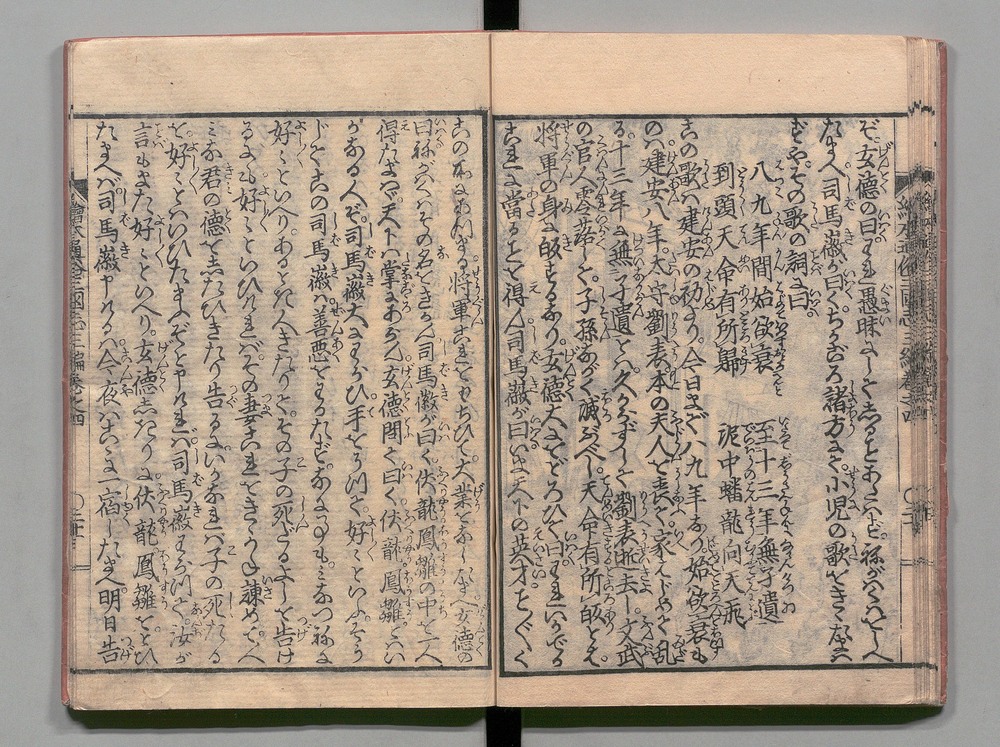 ぞ玄徳の曰われ愚昧にして
たまへ司馬徽が曰くちかごろ諸方にて小児の歌をきゝたまは
ずや。その歌の詞に曰。
八九年間始欲衰　至十三年無孑遺
到頭天命有所歸　泥中蟠龍向天飛
この歌は建安の初より。今日まで八九年なり。始欲衰も
のは建安八年。太守劉表本の夫人を喪て。家しばらく乱
る。十三年に無孑遺とは久からずして劉表逝去し。文武
の官人零落して。子孫ながく滅ぶべし。天命有所皈とは。
将軍の身に皈するなり。玄徳大におどろひて曰われいかでか
これに當ることを得ん。司馬徽が曰いま天下の英才ことごとく
この所にあつまれり将軍これをもちひて大業をおこしたまへ玄徳の
曰ねがはくはその名をきかん司馬徽が曰く伏龍鳳雛の中を一人
得たまはゞ天下は掌にあらん玄徳問て曰く伏龍鳳雛とはい
かなる人ぞ。司馬徽大にわらひ手をうつて。好々といふ。そう
じてこの司馬徽は善悪をわかたず。なにごとも。みなつねに
好々といへり。あるとき人きたりて。その子の死たるよしを告け
るにも。好々といひければ。その妻これをきゝかね諫めていへ
みな君の徳をしたひきたり告るに。いかなれば子の死したる
を。好々とはいひたまふぞと申ければ。司馬徽わらつて。汝が
言もまた好々といへり。玄徳しきりに伏龍鳳雛をとひ
たまへば司馬徽申けるは今夜はこゝに一宿したまへ明日告
繪本通俗三國志三編巻之四